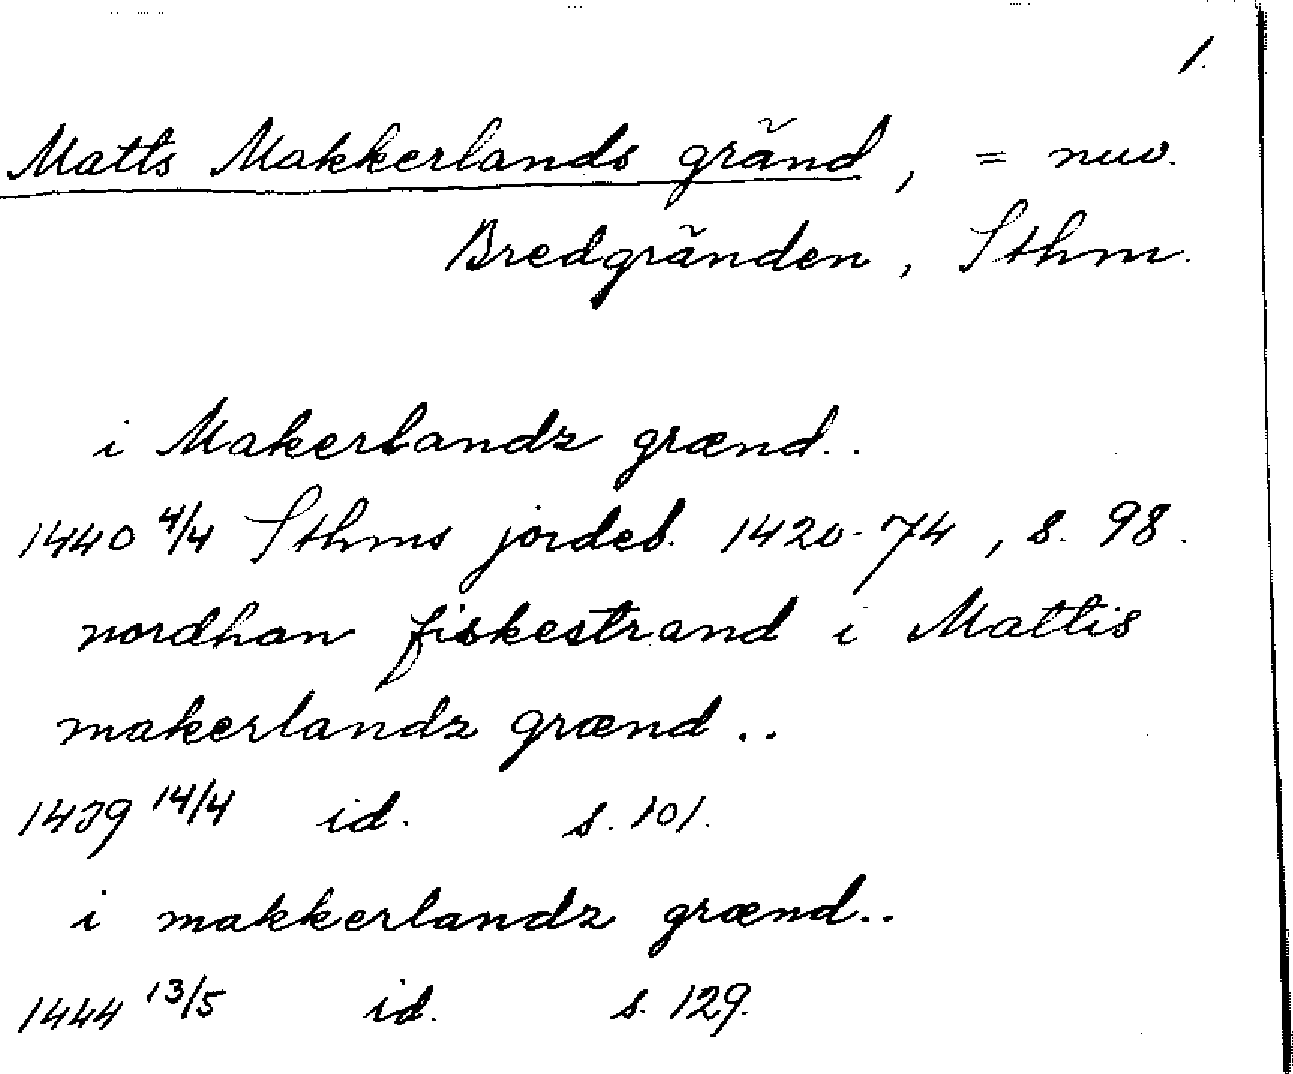 1.
Matts Makkerlands gränd, = nuv.
Bredgränden, Sthm.
i Makerlandz grænd..
1440 4/4 Sthms jordeb. 1420-74, s. 98.
nordhan fiskestrand i Mattis
makerlandz grænd..
1439 14/4 id. s. 101.
i makkerlandz grænd..
1444 13/5 id. s. 129.